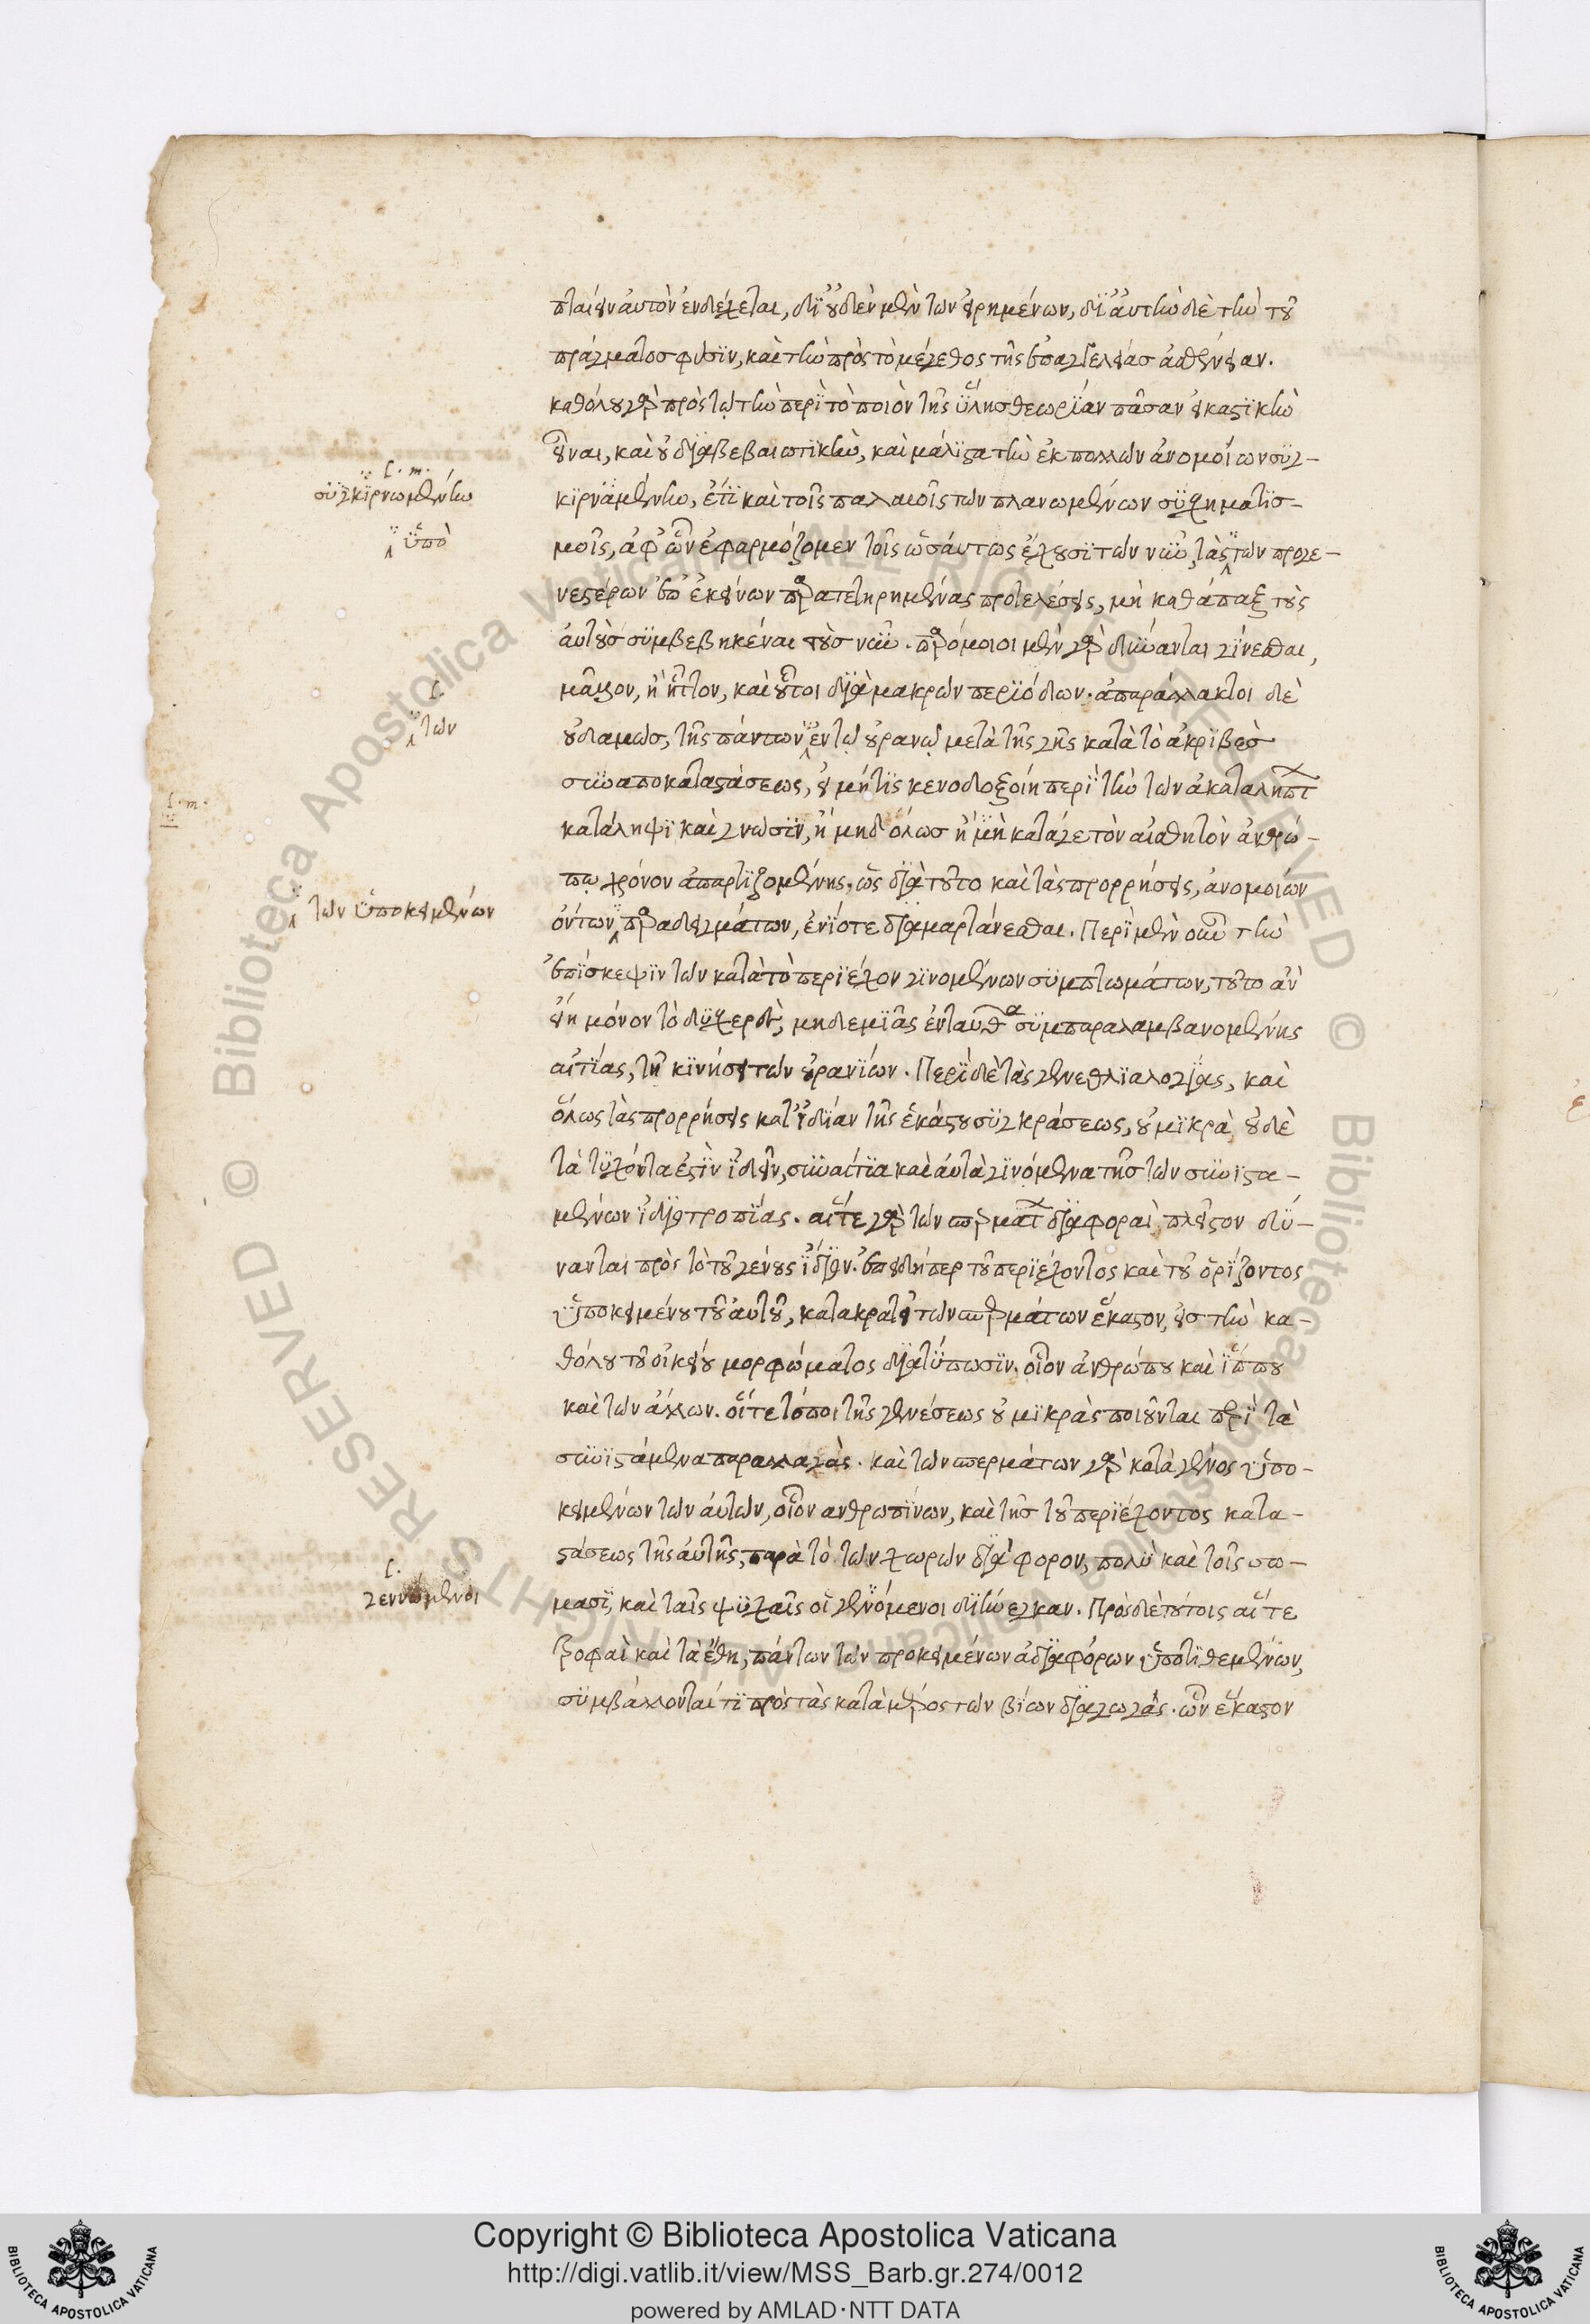 πταίειν αὐτὸν ἐνδέχεται, δι' οὐδὲν μὲν τῶν εἰρημένων, δι' αὐτὴν δὲ τὴν τοῦ
πράγματος φύσιν, καὶ τὴν πρὸς τὸ μέγεθος τῆς ἐπαγγελείας ἀσθένειαν.
καθόλου γὰρ πρὸς τῷ τὴν περὶ τὸ ποιὸν τῆς ὕλης θεωρίαν πᾶσαν εἰκαστικὴν
εἶναι, καὶ οὐ διαβεβαιωτικὴν, καὶ μάλιστα τὴν ἐκ πολλῶν ἀνομοίων συγ-
ſ. m.
συγκιρνωμένην
κιρναμένην, ἔτι καὶ τοῖς παλαιοῖς τῶν πλανωμένων σχηματισ-
ὑπὸ
μοῖς, ἀφ' ὧν ἐφαρμόζομεν τοῖς ὡσαύτως ἔχουσι τῶν νῦν, τὰς τῶν προγε-
νεστέρων ἐπ' ἐκείνων παρατετηρημένας προτελέσεις, μὴ καθάπαξ τοὺς
αὐτοὺς συμβεβηκέναι τοὺς νῦν. παρόμοιοι μὲν γὰρ δύνανται γίνεσθαι,
ſ.
μᾶλλον, ἢ ἧττον, καὶ οὗτοι διὰ μακρῶν περιόδων. ἀπαράλλακτοι δὲ
τῶν
οὐδαμῶς, τῆς πάντων ἐν τῷ οὐρανῷ μετὰ τῆς γῆς κατὰ τὸ ἀκριβὲς
συναποκαταστάσεως, εἰ μή τις κενοδοξοίη περὶ τὴν τῶν ἀκαταλήπτ
ſ. m.
κατάληψι καὶ γνῶσιν, ἢ μηδ' ὅλως ἢ μὴ κατάγε τὸν αἰσθητὸν ἀνθρώ-
πῳ χρόνον ἀπαρτιζομένης. ὡς διὰ τοῦτο καὶ τὰς προρρήσεις, ἀνομοιών
τῶν ὑποκειμένων
ὄντων παραδειγμάτων, ἐνίοτε διαμαρτάνεσθαι. Περὶ μὲν οὖν τὴν
ἐπίσκεψιν τῶν κατὰ τὸ περιέχον γινομένων συμπτωμάτων, τοῦτο ἂν
εἴη μόνον τὸ δυσχερὲς, μηδεμιᾶς ἐνταῦθα συμπαραλαμβανομένης
αἰτίας, τῇ κινήσει τῶν οὐρανίων. Περὶ δὲ τὰς γενεθλιαλογίας, καὶ
ὅλως τὰς προρρήσεις κατ' ἰδίαν τῆς ἑκάστου συγκράσεως, οὐ μικρὰ, οὐδὲ
τὰ τυχόντα ἐστὶν ἰδεῖν, συναίτια καὶ αὐτὰ γινόμενα τῆς τῶν συνιστα-
μένων ἰδιοτροπίας. αἵτε γὰρ τῶν σπερμάτ διαφοραὶ πλεῖστον δύ-
νανται πρὸς τὸ τοῦ γένους ἴδιον. ἐπειδήπερ τοῦ περιέχοντος καὶ τοῦ ὁρίζοντος
ὑποκειμένου τοῦ αὐτοῦ, κατακρατεῖ τῶν σπερμάτων ἕκαστον, εἰς τὴν κα-
θόλου τοῦ οἰκείου μορφώματος διατύπωσιν. οἷον ἀνθρώπου καὶ ἵππου
καὶ τῶν ἄλλων. οἵτε τόποι τῆς γενέσεως οὐ μικρὰς ποιοῦνται περὶ τὰ
συνιστάμενα παραλλαγάς. καὶ τῶν σπερμάτων γὰρ κατὰ γένος ὑπο-
κειμένων τῶν αὐτῶν, οἷον ἀνθρωπίνων, καὶ τῆς τοῦ περιέχοντος κατα-
στάσεως τῆς αὐτῆς, παρὰ τὸ τῶν χωρῶν διάφορον, πολὺ καὶ τοῖς σώ-
ſ.
γεννώμενοι
μασι, καὶ ταῖς ψυχαῖς οἱ γενόμενοι διήνεγκαν. Πρὸς δὲ τούτοις αἵτε
τροφαὶ καὶ τὰ ἔθη, πάντων τῶν προκειμένων ἀδιαφόρων ὑποτιθεμένων,
συμβάλλονταί τι πρὸς τὰς κατὰ μέρος τῶν βίων διαγωγάς. ὧν ἕκαστον
© Biblioteca Apostolica Vaticana ALL RIGHTS RESERVED
© Biblioteca Apostolica Vaticana ALL RIGHTS RESERVED
BIBLIOTECA APOSTOLICA VATICANA
Copyright © Biblioteca Apostolica Vaticana
http://digi.vatlib.it/view/MSS_Barb.gr.274/0012
powered by AMLAD·NTT DATA
BIBLIOTECA APOSTOLICA VATICANA